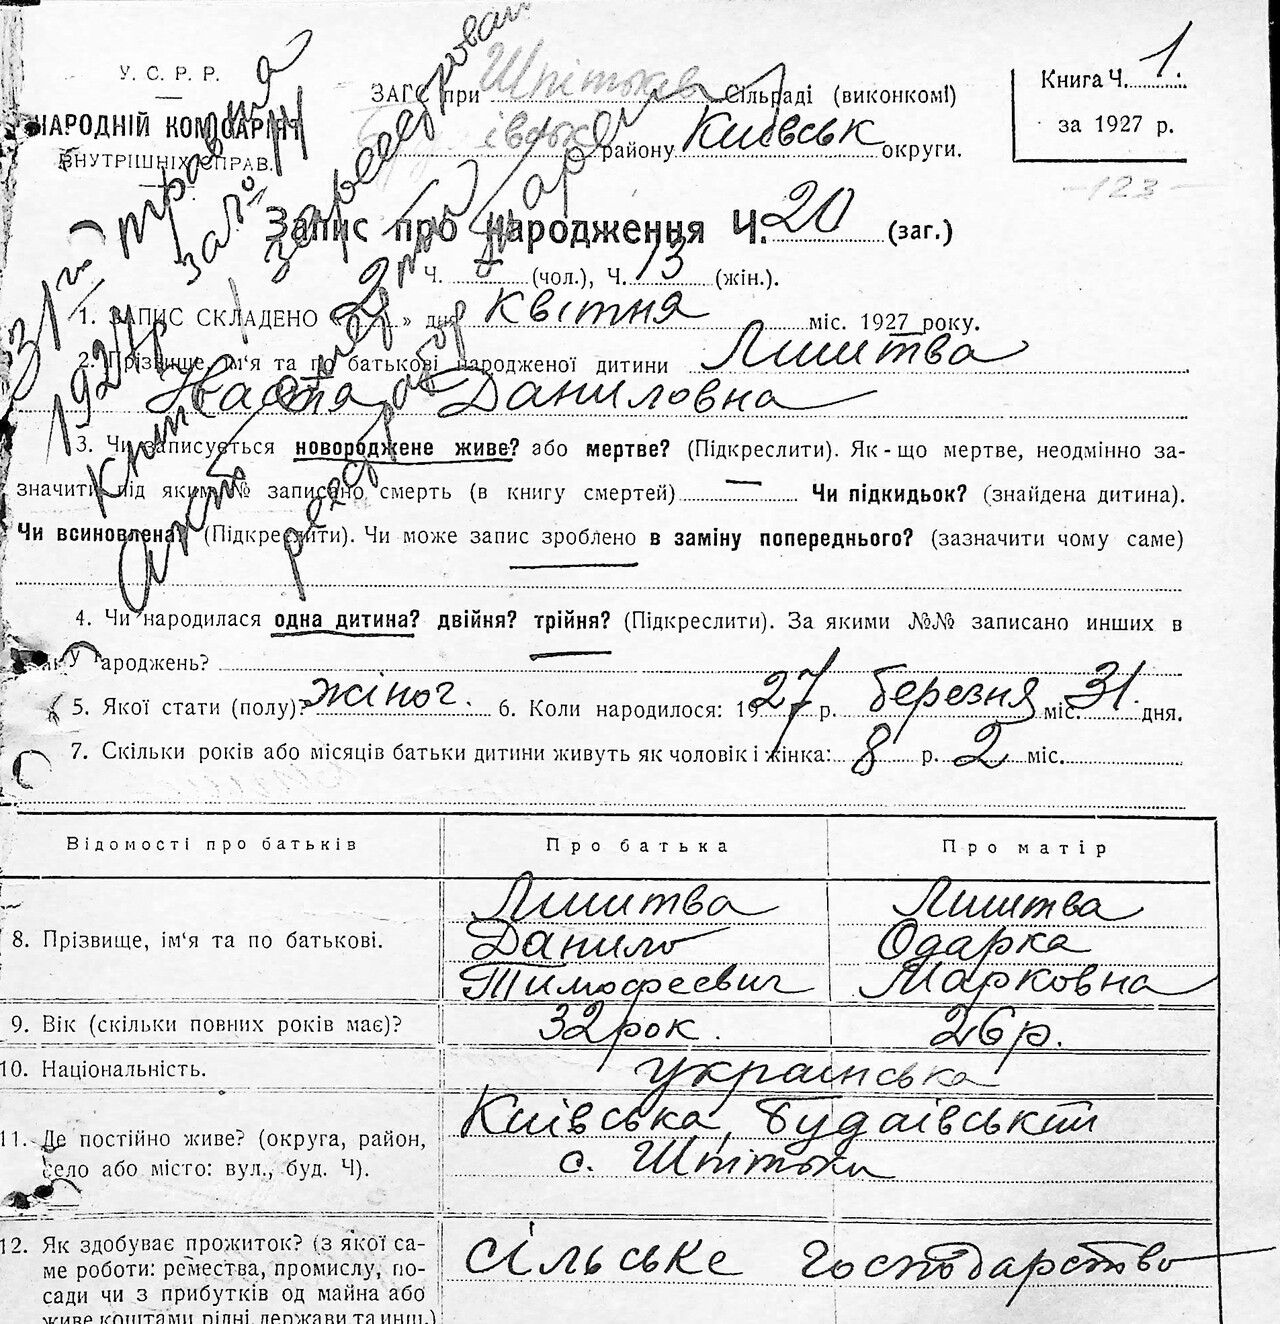 У. С. Р. Р.
НАРОДНІЙ КОМІСАРІЯТ
ВНУТРІШНІХ СПРАВ.
ЗАГС при Шпітьках Сільраді (виконкомі)
району Київськ округи.
Книга Ч. 1.
за 1927 р.
123
Запис про народження Ч. 20 (заг.)
Ч. (чол.), Ч. 13 (жін.).
1. ЗАПИС СКЛАДЕНО « 2 » дня квітня міс. 1927 року.
2. Прізвище, ім‘я та по батькові народженої дитини Лиштва
Настя Даниловна
3. Чи записується новороджене живе? або мертве? (Підкреслити). Як-що мертве, неодмінно за-
значити під яким № записано смерть (в книгу смертей) — Чи підкидьок? (знайдена дитина).
Чи всиновлена? (Підкреслити). Чи може запис зроблено в заміну попереднього? (зазначити чому саме)
4. Чи народилася одна дитина? двійня? трійня? (Підкреслити). За якими №№ записано инших в
народжень?
5. Якої стати (полу)? жіноч. 6. Коли народилося: 1927 р. березня міс. 31. дня.
7. Скільки років або місяців батьки дитини живуть як чоловік і жінка: 8 р. 2 міс.
Відомості про батьків Про батька Про матір
8. Прізвище, ім‘я та по батькові. Лиштва Данило Тимофеевич Лиштва Одарка Марковна
9. Вік (скільки повних років має)? 32 рок. 26 р.
10. Національність. українська
11. Де постійно живе? (округа, район, Київська, Будаївський
село або місто: вул., буд. Ч). с. Шпітьки
12. Як здобуває прожиток? (з якої са- сільське господарство
ме роботи: ремества, промислу, по-
сади чи з прибутків од майна або
живе коштами рідні, держави та инш.)
31го травня
1927 р
зареєстрован